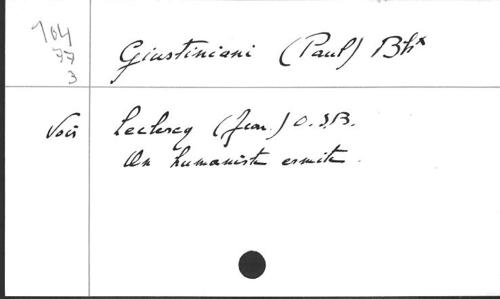 104
77
3
Giustiniani (Paul) Bhx
Voir
Leclercq (Jean.) O.S.B.
Un humaniste ermite.